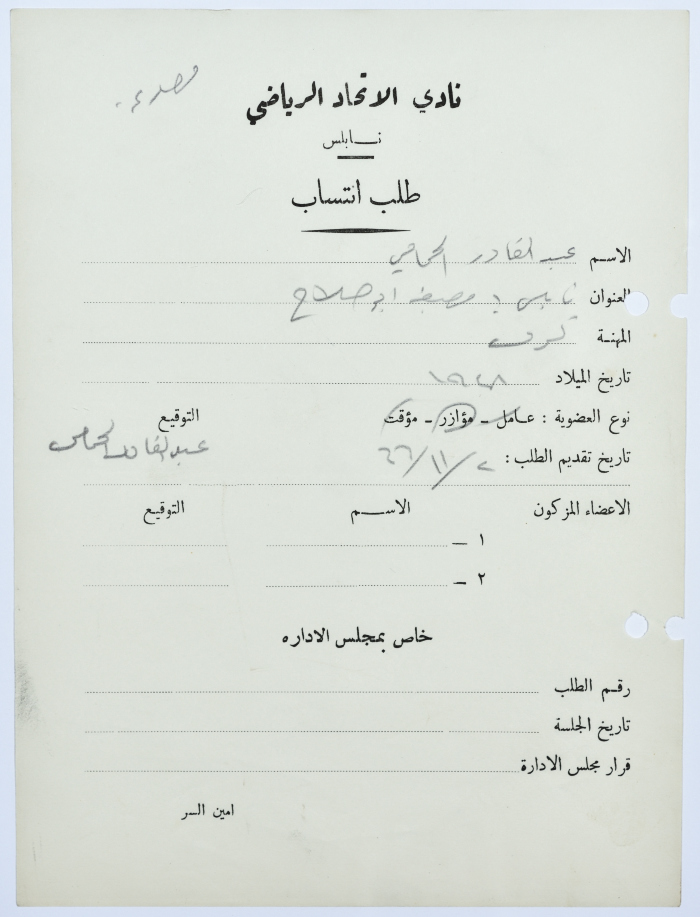 نادي الاتحاد الرياضي
نابلس
طلب انتساب
الاسم عبد القادر الحمامي
العنوان نابلس ؛ مصبغة ابو صلاح
المهنة
تاريخ الميلاد ١٩٤٨
نوع العضوية : عامل - مؤازر - مؤقت التوقيع
تاريخ تقديم الطلب : ٢/١١/٦٦ عبد القادر الحمامي
الاعضاء المزكون الاسم التوقيع
١ —
٢ —
خاص بمجلس الاداره
رقم الطلب
تاريخ الجلسة
قرار مجلس الادارة
امين السر